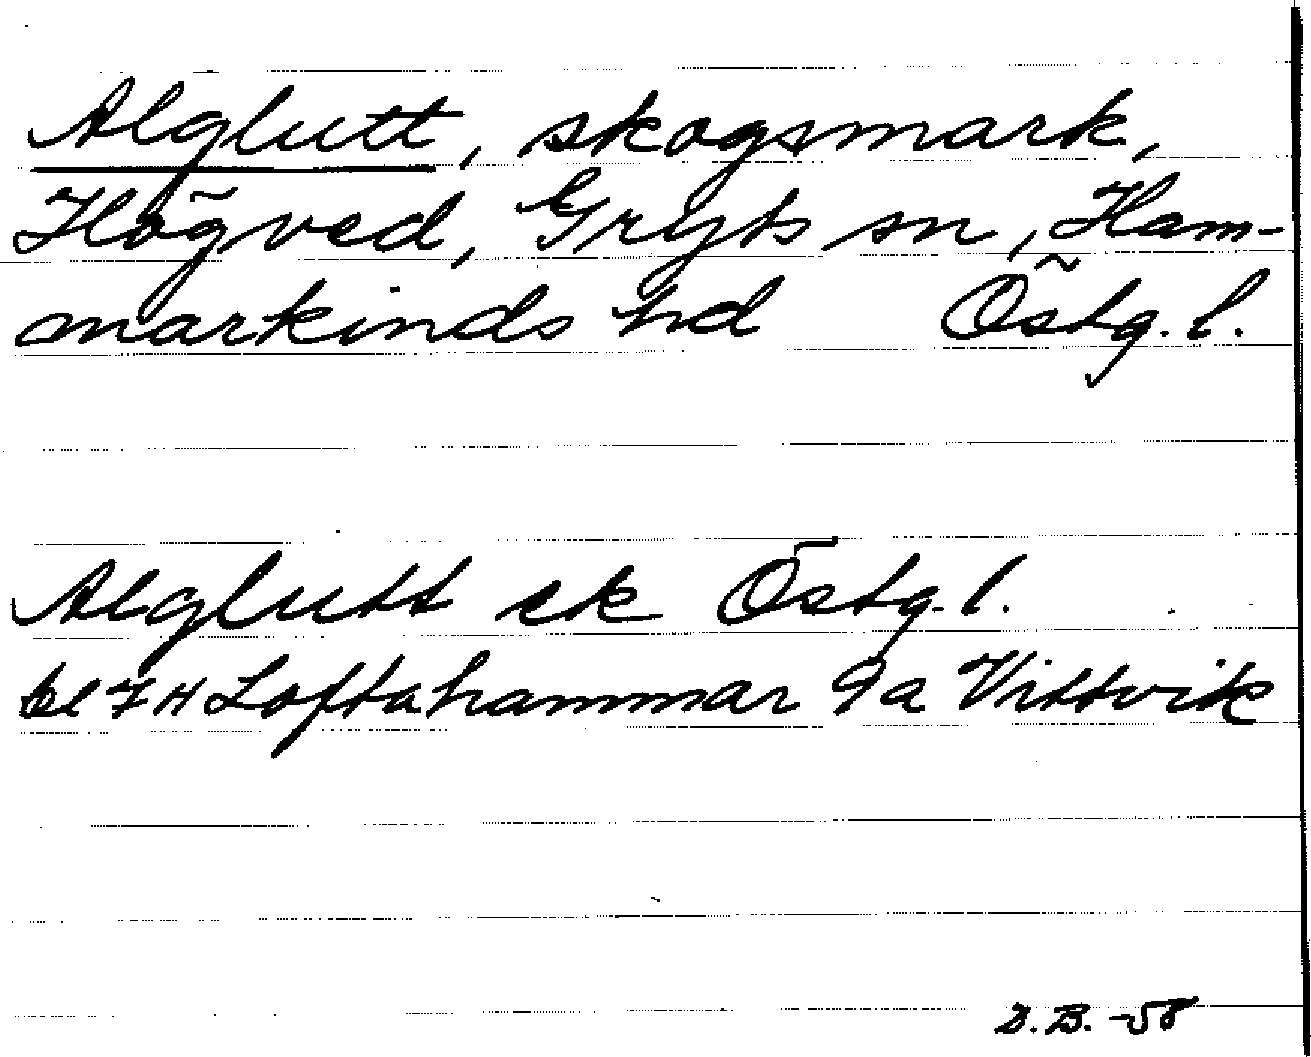 Alglutt, skogsmark,
Högved, Gryts sn, Ham-
markinds hd Östg. l.
Alglutt ek Östg. l.
bl 7H Loftahammar 9a Vittvik
D.B. -58